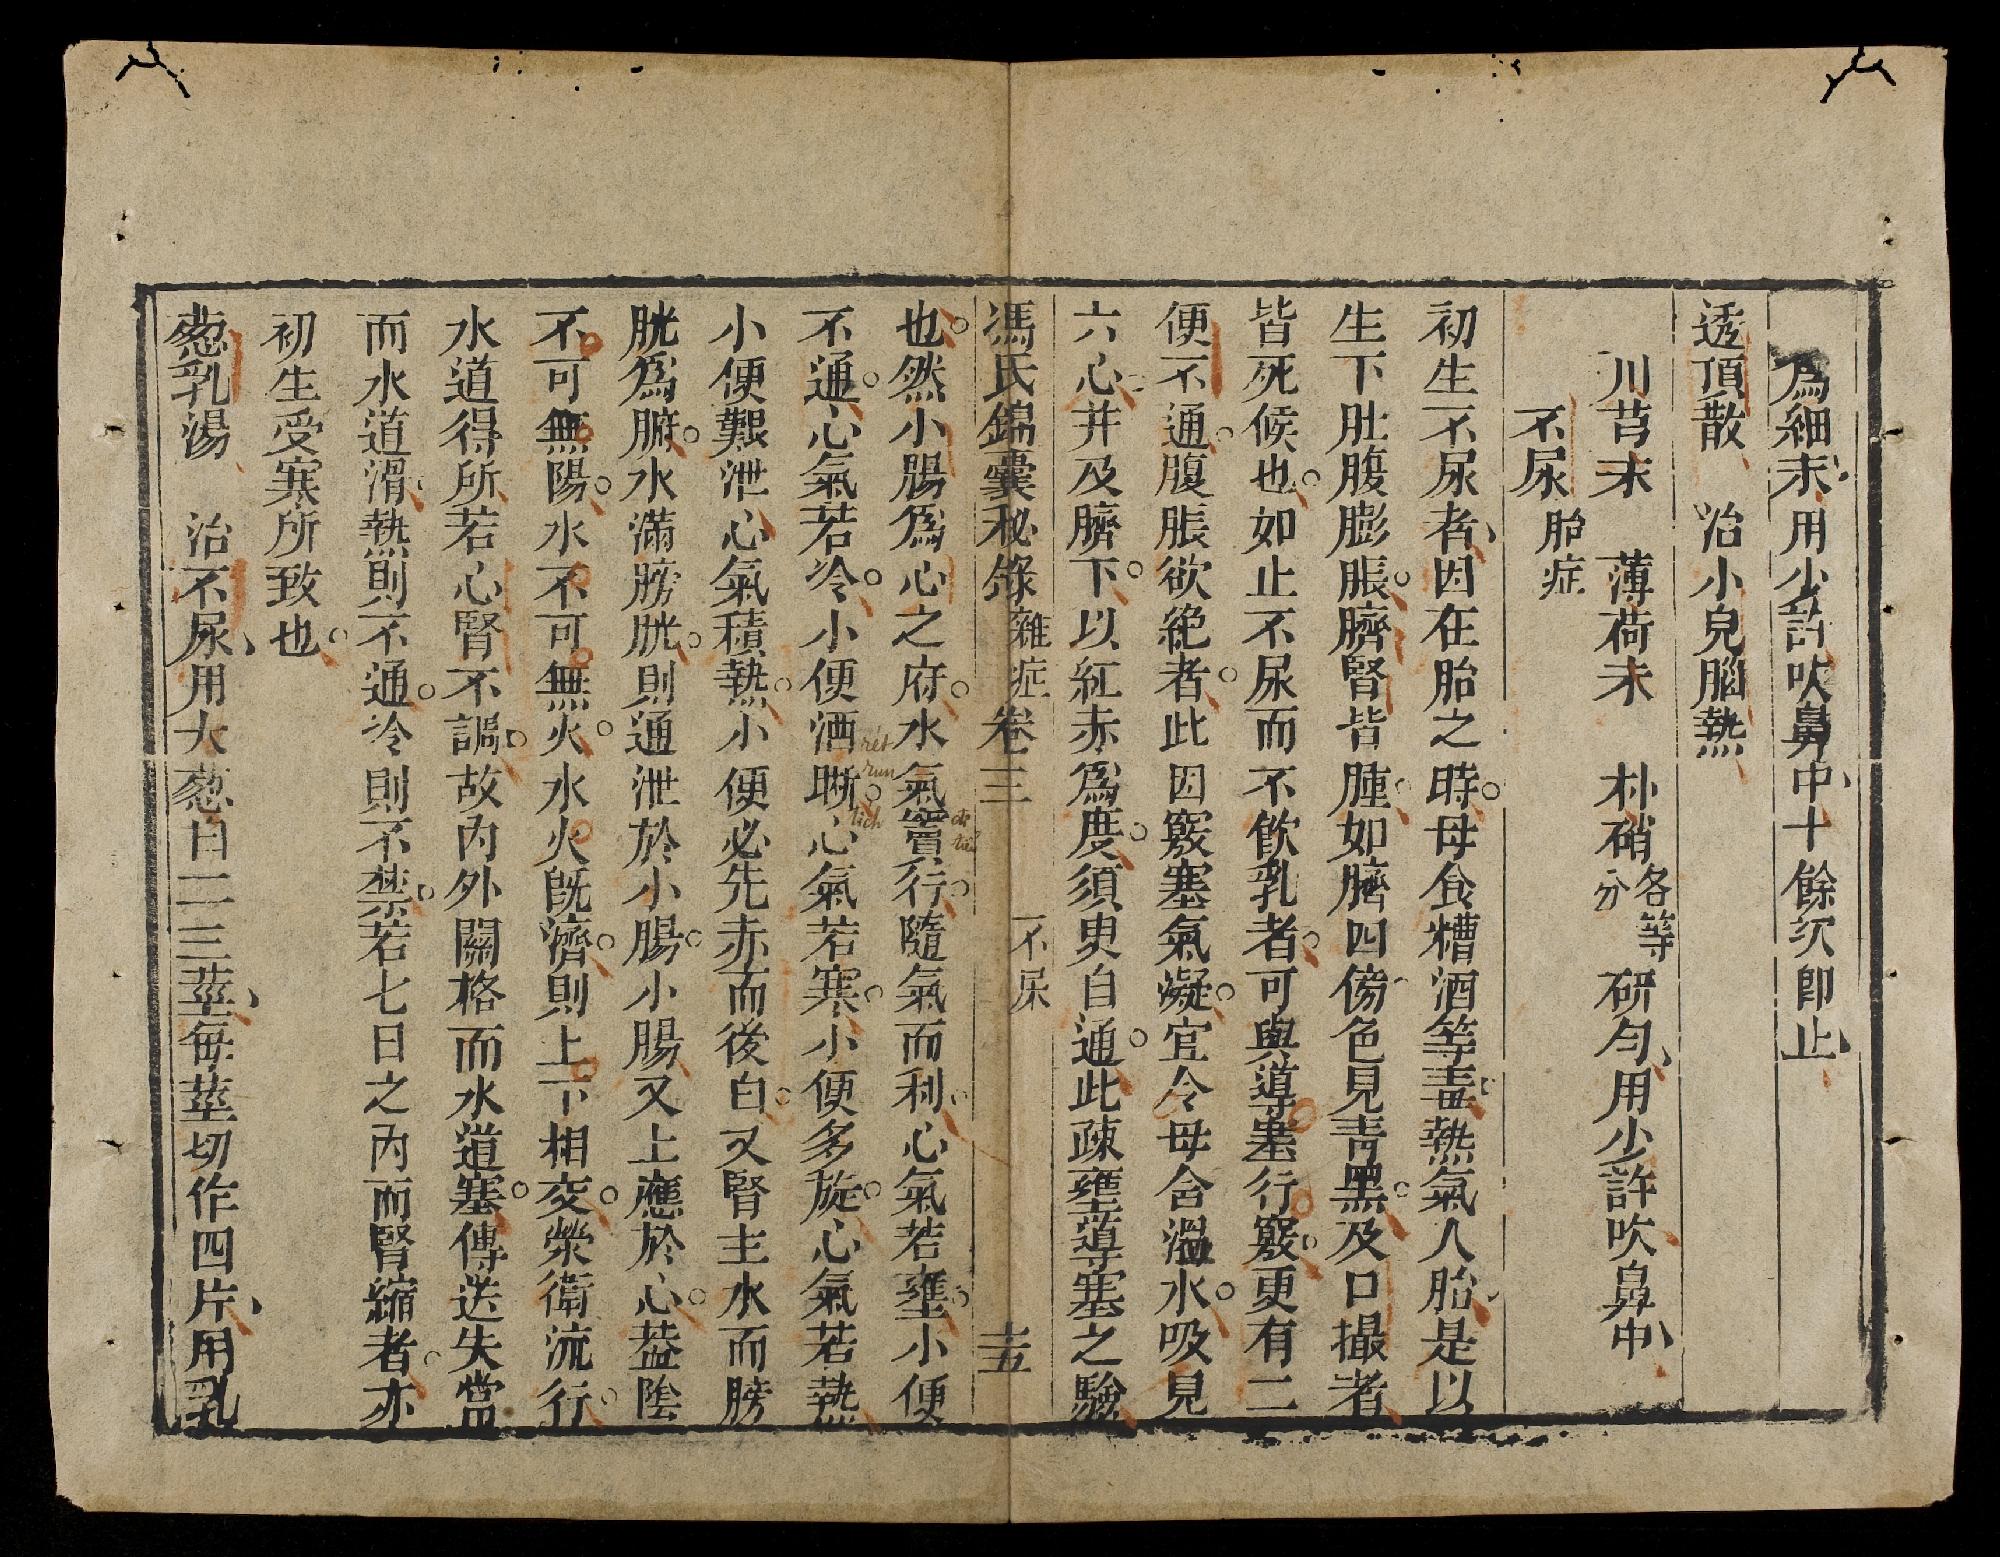 為細末用少許吹鼻中十餘次卽止
透頂散　治小兒腦熱
川芎末　薄荷末　朴硝各等分　研勻用少許吹鼻中
不尿胎症
初生不尿者因在胎之時母食糟酒等毒熱氣入胎是以
生下肚腹膨脹臍腎皆腫如臍四傍色見青黑及口撮者
皆死候也如止不尿而不飲乳者可與導塞行竅更有二
便不通腹脹欲絶者此因竅塞氣凝宜令母含溫水吸兒
六心并及臍下以紅赤爲度須臾自通此疎壅導塞之驗
馮氏錦囊秘錄　雜症卷三　不尿　十五
也然小腸爲心之府水氣竇行隨氣而利心氣若壅小便
不通心氣若冷小便洒晰心氣若寒小便多旋心氣若熱
小便艱泄心氣積熱小便必先赤而後白又腎主水而膀
胱爲腑水滿膀胱則通泄於小腸小腸又上應於心葢陰
不可無陽水不可無火水火旣濟則上下相交榮衛流行
水道得所若心腎不調故內外關格而水道塞傳送失當
而水道滑熱則不通冷則不禁若七日之內而腎縮者亦
初生受寒所致也
葱乳湯　治不尿用大葱白二三莖每莖切作四片用乳
rét
run
tích